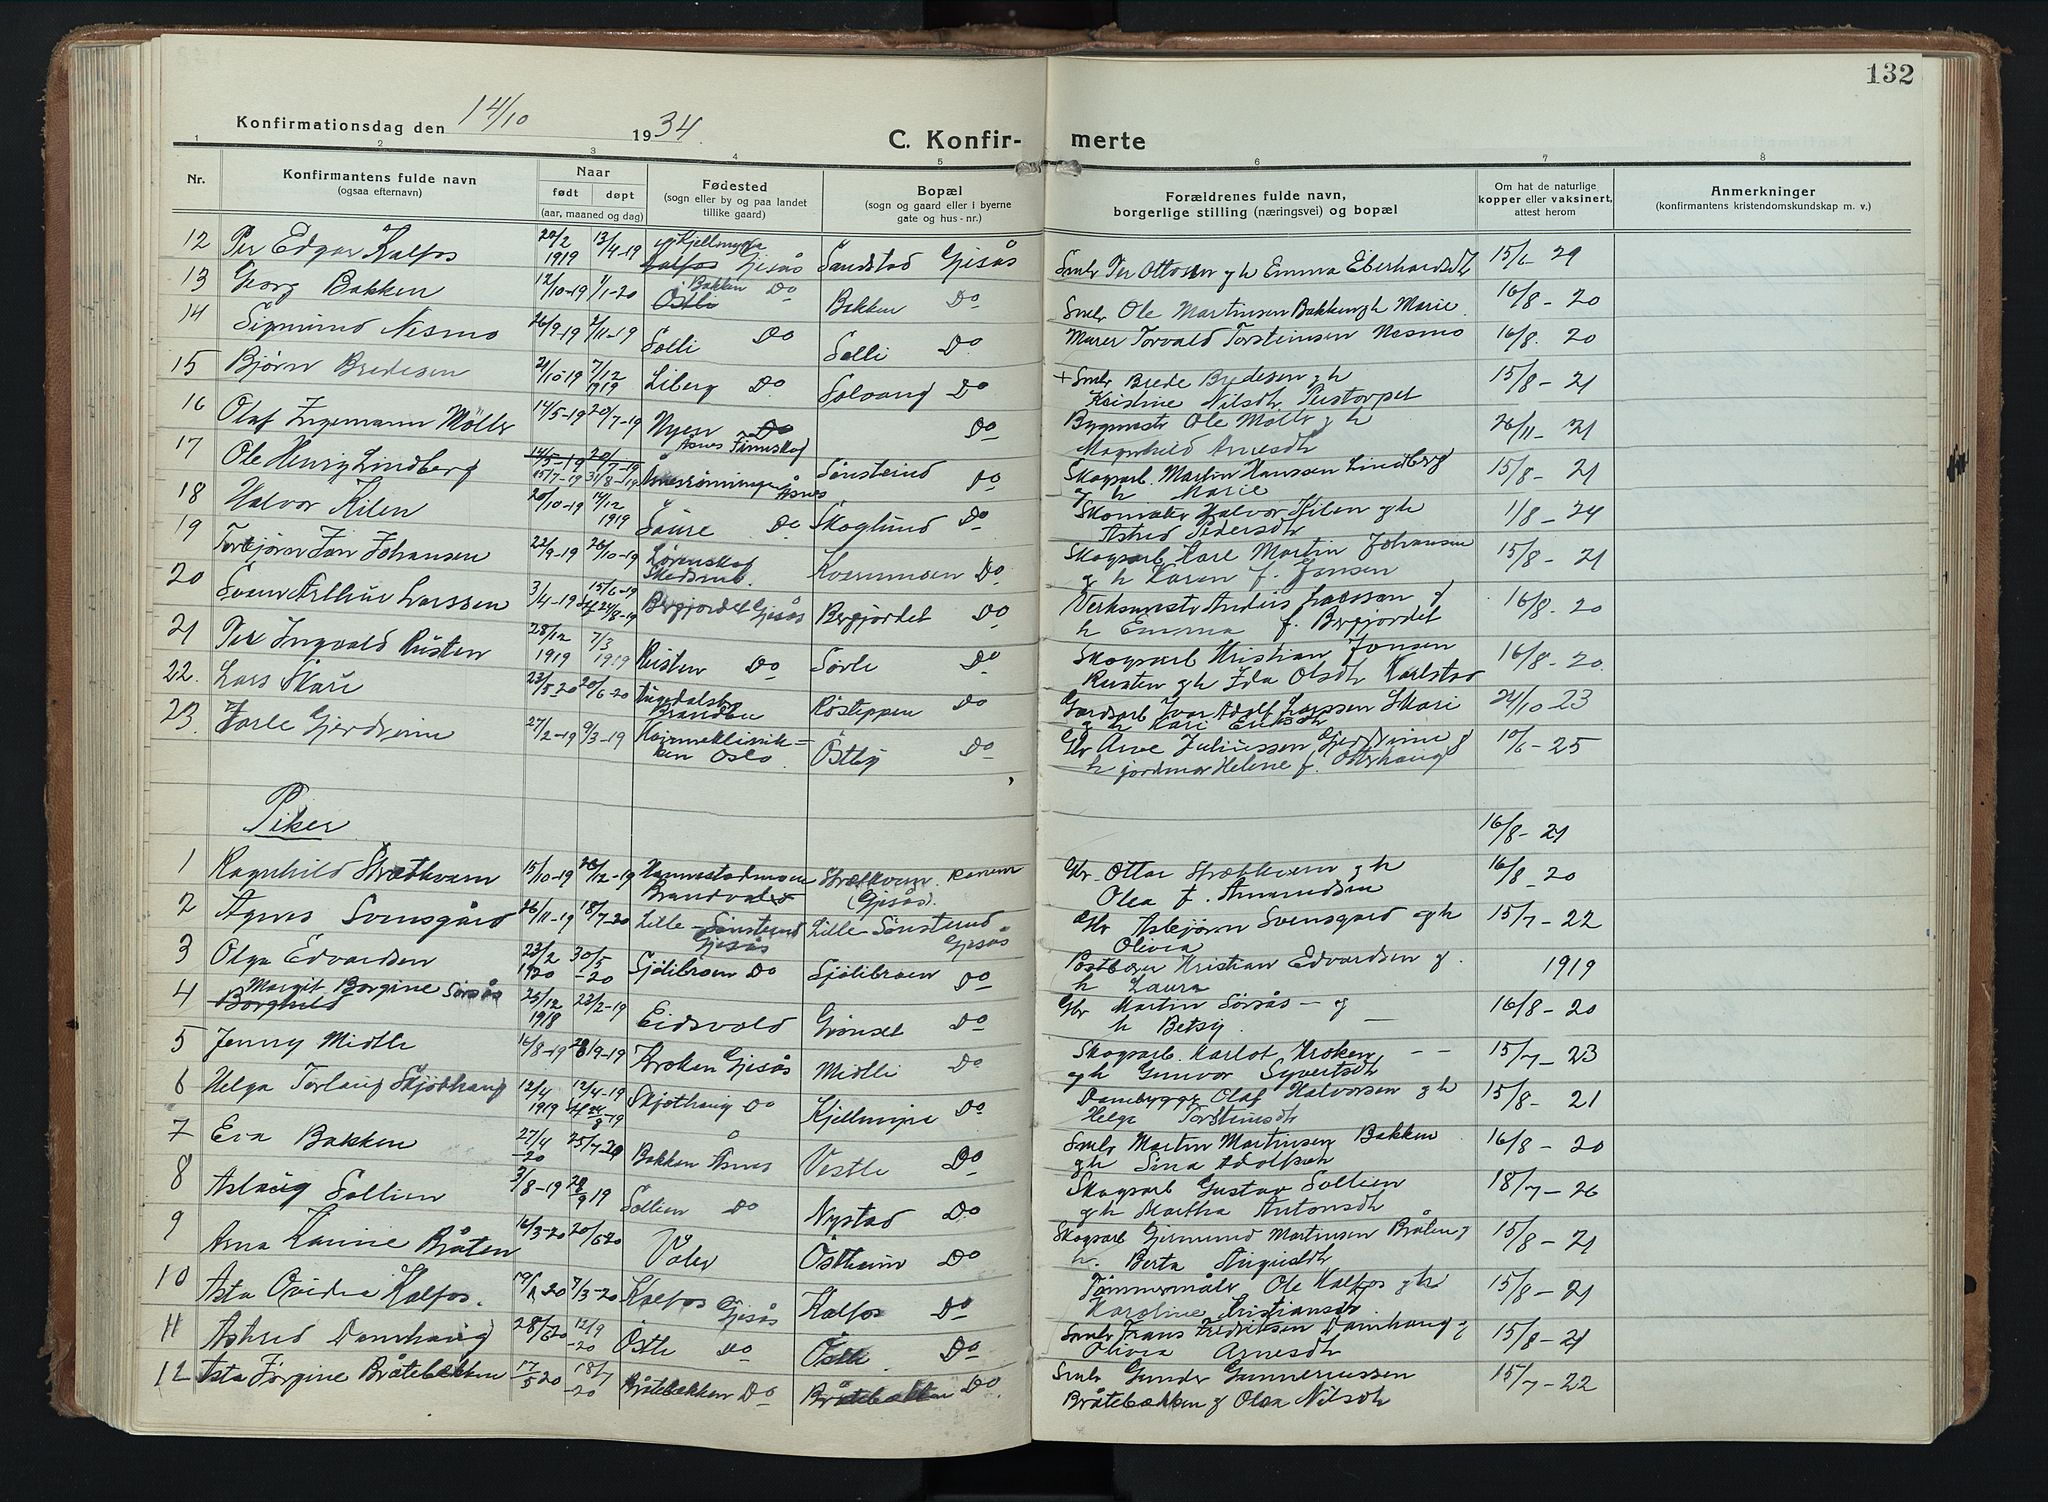 132
Konfirmationsdag den 14/10 1934.
C. Konfir- merte
1 2 3 4 5 6 7 8
Nr.
Konfirmantens fulde navn
(ogsaa efternavn)
Naar
født døpt
(aar, maaned og dag)
Fødested
(sogn eller by og paa landet
tillike gaard)
Bopæl
(sogn og gaard eller i byerne
gate og hus-nr.)
Forældrenes fulde navn,
borgerlige stilling (næringsvei) og bopæl
Om hat de naturlige
kopper eller vaksinert,
attest herom
Anmerkninger
(konfirmantens kristendomskundskap m. v.)
12 Per Edgar Kalfos 20/2 1919 13/4-19 Kjellmyra Kalfos Gjesås Sandstad Gjesås Smbr Per Ottosen og h Emma Eberhardsdtr 15/6-29
13 Georg Bakken 12/10-19 1/1-20 Bakken Do Østli Bakken Do Smbr Ole Martinsen Bakken og h Marie. 16/8-20
14 Sigmund Nesmo 26/9-19 2/11-19 Solli Do Solli Do Murer Torvald Torsteinsen Nesmo 16/8-20
15 Bjørn Bredesen 21/10-19 7/12 1919 Liberg Do Solvang Do + Smbr Brede Bredesen og h
Kristine Nilsdtr Perstorpet 15/8-21
16 Olaf Ingemann Möller 14/5-19 20/7-19 Nyen Do Åsnes Finnskog Do Bygmstr Ole Möller og h
Magnhild Arnesdtr 26/11-21
17 Ole Henry Lindberg 14/5-19 20/7-19 15/7-19 31/8-19 Åsnes Sønsterud Do Skogsarb. Martin Hanssen Lindberg
og h Marie 15/8-21
18 Halvor Kilen 20/10-19 14/12 1919 Saure Do Skoglund Do Skomaker Halvor Kilen og h
Astrid Pedersdtr 1/8-24
19 Torbjørn Jan Johansen 22/9-19 26/10-19 Lørenskog Skedsmo. Kvernmoen Do Skogsarb Karl Martin Johansen
og h Karen f. Jensen 15/8-21
20 Svein Arthur Larssen 3/4-19 15/6-19 24/8-19 Bergjordet Gjesås Bergjordet Do Verksmstr Anders Larssen og
h Emma f. Bergjordet 16/8-20
21 Per Ingvald Rusten 28/12 1919 7/3 1919 Rusten Do Sørli Do Skogsarb Kristian Jonsen
Rusten og h Ida Olsdtr Karlstad 16/8-20.
22. Lars Skari 23/5-20 20/6-20 Røsteppen Do Gardsarb Ivar Adolf Larssen Skari
og h Kari Eriksdtr 24/10 23
23. Jarle Gjerdrum 27/2-19 9/3-19 Kvinneklinikken Oslo. Östby Do Gbr Arve Juliussen Gjerdrum og
h jordmor Helene f. Otterhaug 10/6-25
Piker
16/8-21
1 Ragnhild Strætkvern 15/10-19 26/12-19 Brandval Strætkvern. (Gjesås). Gbr. Ottar Strætkvern og h
Olea f. Amundsen 16/8-20
2 Agnes Svensgård 26/11-19 18/7-20 Lille-Sønsterud Gjesås Lille-Sønsterud Gjesås Gbr Asbjørn Svensgård og h
Olivia 15/7-22
3 Olga Edvardsen 23/2 1920 30/5-20 Sjölibroen Do Sjölibroen Do Postbærer Kristian Edvardsen og
h Laura 1919
4 Margit Borgine Sørsås Borghild 25/12 1918 23/2-19 Eidsvold Grønset Do Gbr Martin Sørsås — og
h Betsy. 16/8-20
5 Jenny Midtli 16/8-19 28/9-19 Kroken Gjesås Midtli Do Skogsarb. Karlot Kroken
og h Gunvor Syvertsdtr 15/7-23
6 Helga Torlaug Skjöthaug 12/4 1919 12/4-19 24/8-19 Skjøthaug Do Kjellmyra Do Dambygger Olaf Halvorsen og h
Helga Torsteinsdtr 15/8-21
7 Eva Bakken 27/4-20 25/7-20 Bakken Åsnes Vestli Do Smbr Martin Martinsen Bakken
og h Sina Adolfsdtr 16/8-20
8 Aslaug Sollien 3/8-19 28/9 19 Sollien Do Nystad Do Skogsarb Gustav Sollien
og h Martha Antonsdtr 18/7-26
9 Arna Karine Bråten 16/3-20 20/6-20 Våler Östheim Do Skogsarb Gjermund Martinsen Bråten og
h. Berta 15/8-21
10 Asta Ovidia Kalfos. 19/1 20 7/3-20 Kalfos Gjesås Kalfos Do Tømmermåler Ole Kalfos og h
Karoline Kristiansdtr 15/8-21
11 Astrid Damhaug 28/6 20 12/9-20 Östli Do Östli Do Smbr Frans Fredriksen Damhaug og
Olivia Arnesdtr 15/8-21
12 Asta Jørgine Bråtebækken 17/5 20 18/7-20 Bråtebækken Do Bråtebækken Do. Smbr Gunder Gunnerussen
Bråtebækken og Olea Nilsdtr 15/7-22